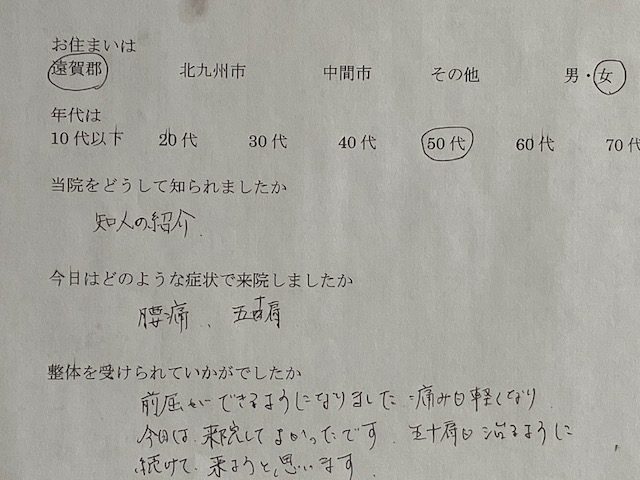 お住まいは
遠賀郡 北九州市 中間市 その他 男・女
年代は
10代以下 20代 30代 40代 50代 60代 70代
当院をどうして知られましたか
知人の紹介.
今日はどのような症状で来院しましたか
腰痛、五十肩
整体を受けられていかがでしたか
前屈ができるようになりました 痛みも軽くなり
今日は、来院してよかったです 五十肩も治るように
続けて来ようと思います